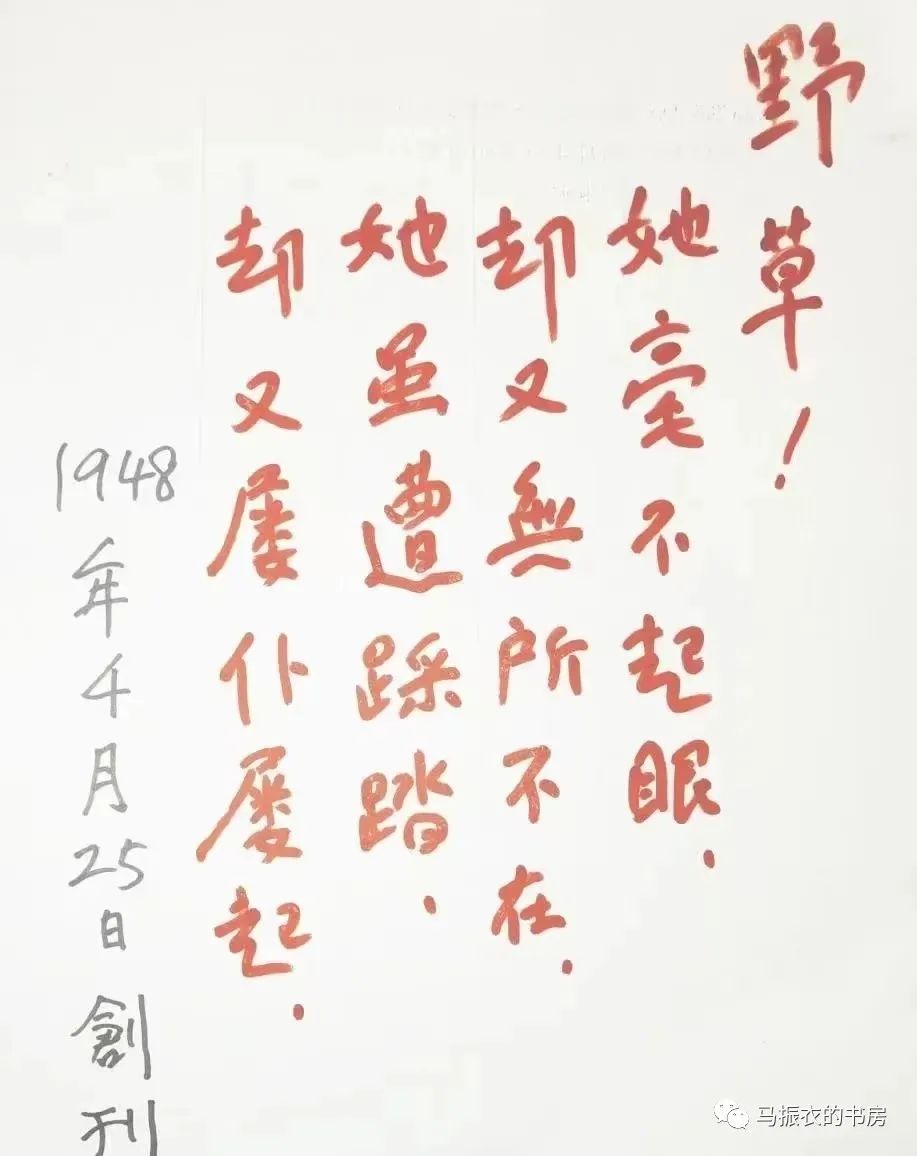 野草！
她毫不起眼.
却又無所不在.
她虽遭踩踏.
却又屡仆屡起.
1948年4月25日創刊
马振衣的书房